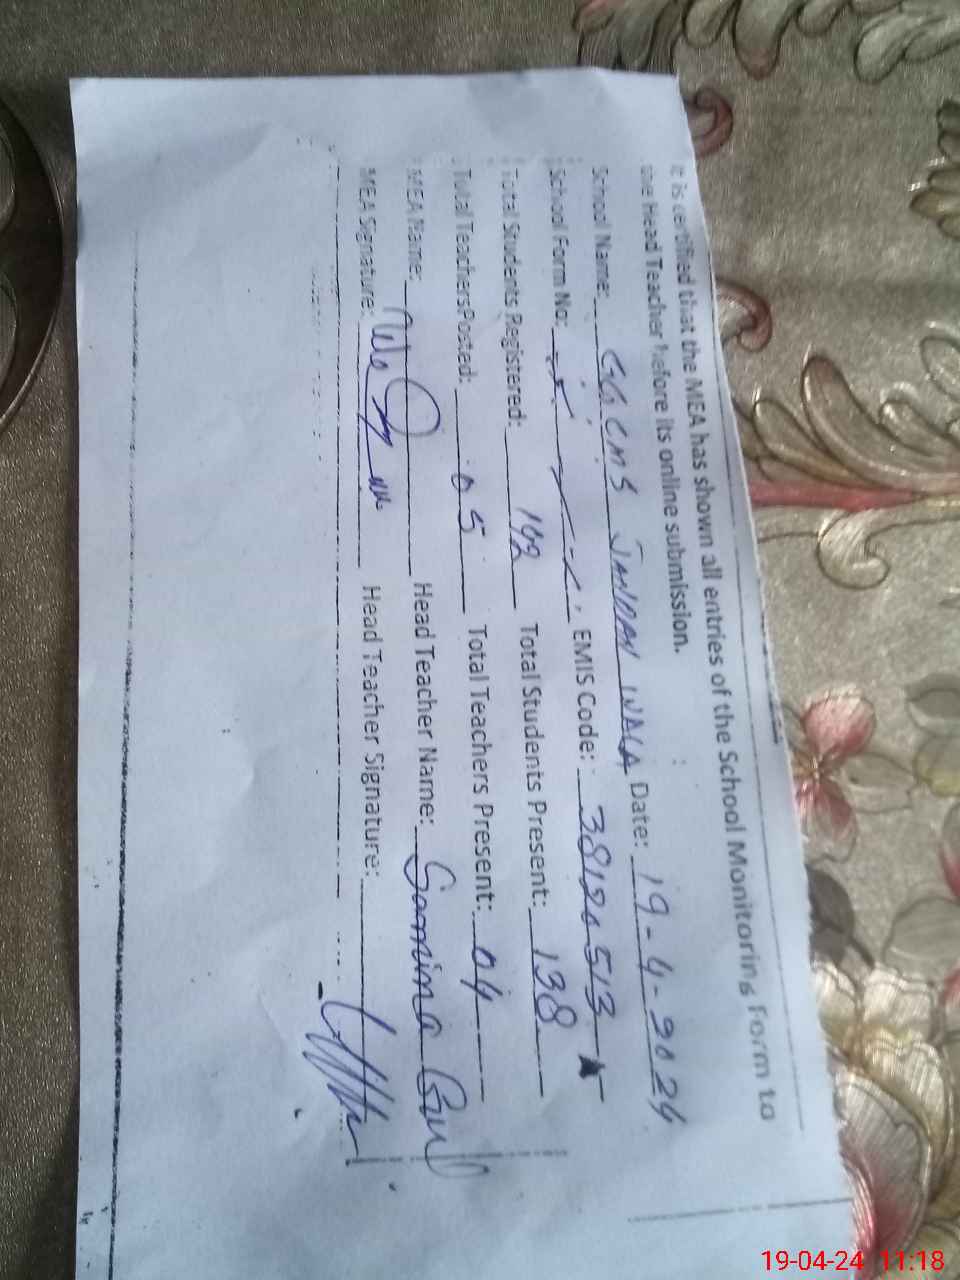 It is certified that the MEA has shown all entries of the School Monitoring Form to
the Head Teacher before its online submission.
School Name: GGCMS JANDAN WALA Date: 19-4-2024
School Form No: EMIS Code: 38120513
Total Students Registered: 142 Total Students Present: 138
Total Teachers Posted: 05 Total Teachers Present: 04
MEA Name: Head Teacher Name: Samina Gul
MEA Signature: Head Teacher Signature:
19-04-24 11:18